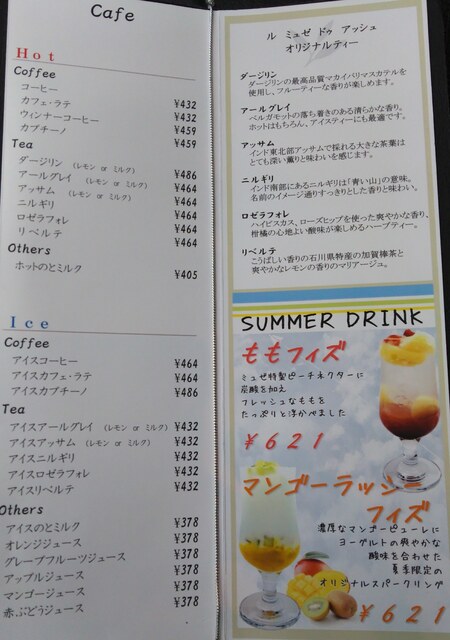 Cafe
Hot
Coffee
コーヒー ¥432
カフェ・ラテ ¥432
ウィンナーコーヒー ¥459
カプチーノ ¥459
Tea
ダージリン (レモン or ミルク) ¥486
アールグレイ (レモン or ミルク) ¥464
アッサム (レモン or ミルク) ¥464
ニルギリ ¥464
ロゼラフォレ ¥464
リベルテ ¥464
Others
ホットのとミルク ¥405
Ice
Coffee
アイスコーヒー ¥464
アイスカフェ・ラテ ¥464
アイスカプチーノ ¥486
Tea
アイスアールグレイ (レモン or ミルク) ¥432
アイスアッサム (レモン or ミルク) ¥432
アイスニルギリ ¥432
アイスロゼラフォレ ¥432
アイスリベルテ ¥432
Others
アイスのとミルク ¥378
オレンジジュース ¥378
グレープフルーツジュース ¥378
アップルジュース ¥378
マンゴージュース ¥378
赤ぶどうジュース ¥378
ル ミュゼ ドゥ アッシュ
オリジナルティー
ダージリン
ダージリンの最高品質マカイバリマスカテルを
使用し、フルーティーな香りが楽しめます。
アールグレイ
ベルガモットの落ち着きのある清らかな香り。
ホットはもちろん、アイスティーにも最適です。
アッサム
インド東北部アッサムで採れる大きな茶葉は
とても深い薫りと味わいを感じます。
ニルギリ
インド南部にあるニルギリは「青い山」の意味。
名前のイメージ通りすっきりとした香りと味わい。
ロゼラフォレ
ハイビスカス、ローズヒップを使った爽やかな香り。
柑橘の心地よい酸味が楽しめるハーブティー。
リベルテ
こうばしい香りの石川県特産の加賀棒茶と
爽やかなレモンの香りのマリアージュ。
SUMMER DRINK
ももフィズ
ミュゼ特製ピーチネクターに
炭酸を加え
フレッシュなももを
たっぷりと浮かべました
¥621
マンゴーラッシー
フィズ
濃厚なマンゴーピューレに
ヨーグルトの爽やかな
酸味を合わせた
夏季限定の
オリジナルスパークリング
¥621